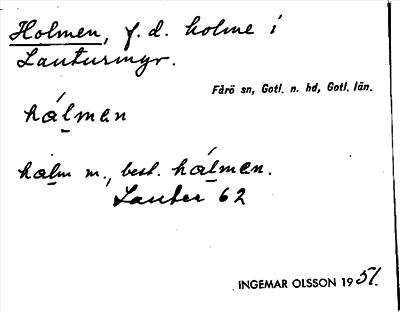 Holmen, f. d. holme i
Lautursmyr.
Fårö sn, Gotl. n. hd, Gotl. län.
hálmen
halm m., best. hálmen.
Lauter 62
INGEMAR OLSSON 1951.